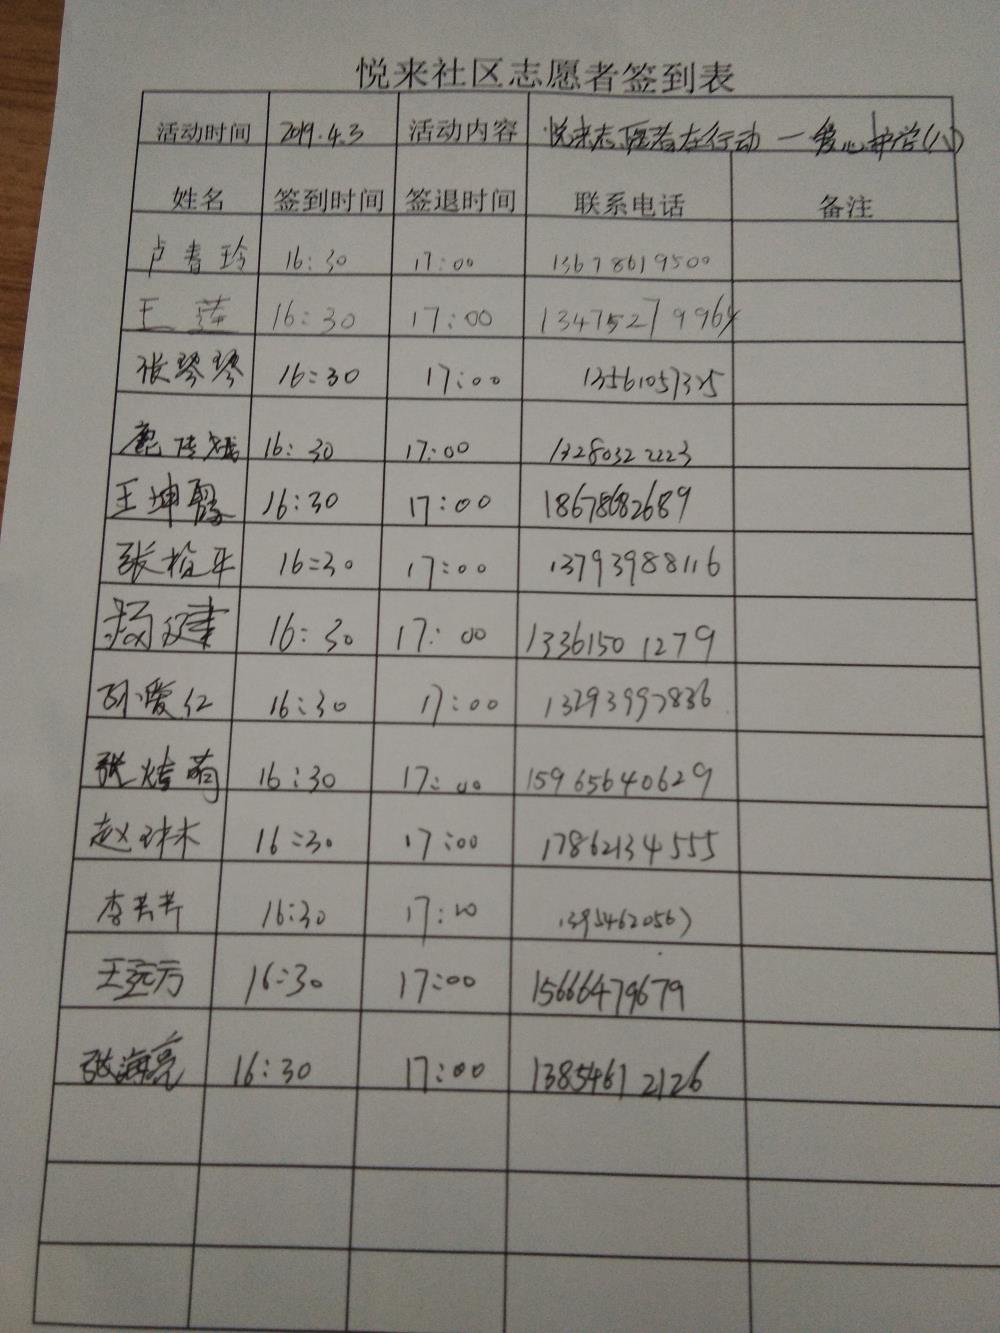 悦来社区志愿者签到表
活动时间 2019.4.3 活动内容 悦来志愿者在行动 — 爱心护学(八)
姓名 签到时间 签退时间 联系电话 备注
卢春玲 16:30 17:00 13678619500
王莲 16:30 17:00 13475279964
张琴琴 16:30 17:00 13561057325
16:30 17:00 13280322223
王坤霞 16:30 17:00 18678682689
张 平 16:30 17:00 13793988116
杨健 16:30 17:00 13361501279
孙爱红 16:30 17:00
张 萌 16:30 17:00 15965640629
赵 木 16:30 17:00 17862134555
李芳芳 16:30 17:00
王远方 16:30 17:00 15666479679
张海亮 16:30 17:00 13854612126